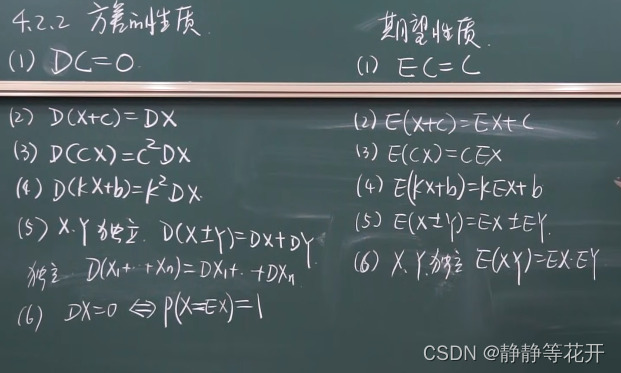 4.2.2 方差的性质.
(1) DC=0.
(2) D(X+c)=DX
(3) D(CX)=C²DX
(4) D(kX+b)=k²DX.
(5) X.Y独立. D(X±Y)=DX+DY.
独立 D(X₁+…+Xn)=DX₁+…+DXn
(6) DX=0 ⇔ P(X=EX)=1
期望性质.
(1) EC=C
(2) E(X+c)=EX+C
(3) E(CX)=CEX
(4) E(kX+b)=kEX+b
(5) E(X±Y)=EX±EY.
(6) X.Y.独立 E(XY)=EX·EY
CSDN @静静等花开